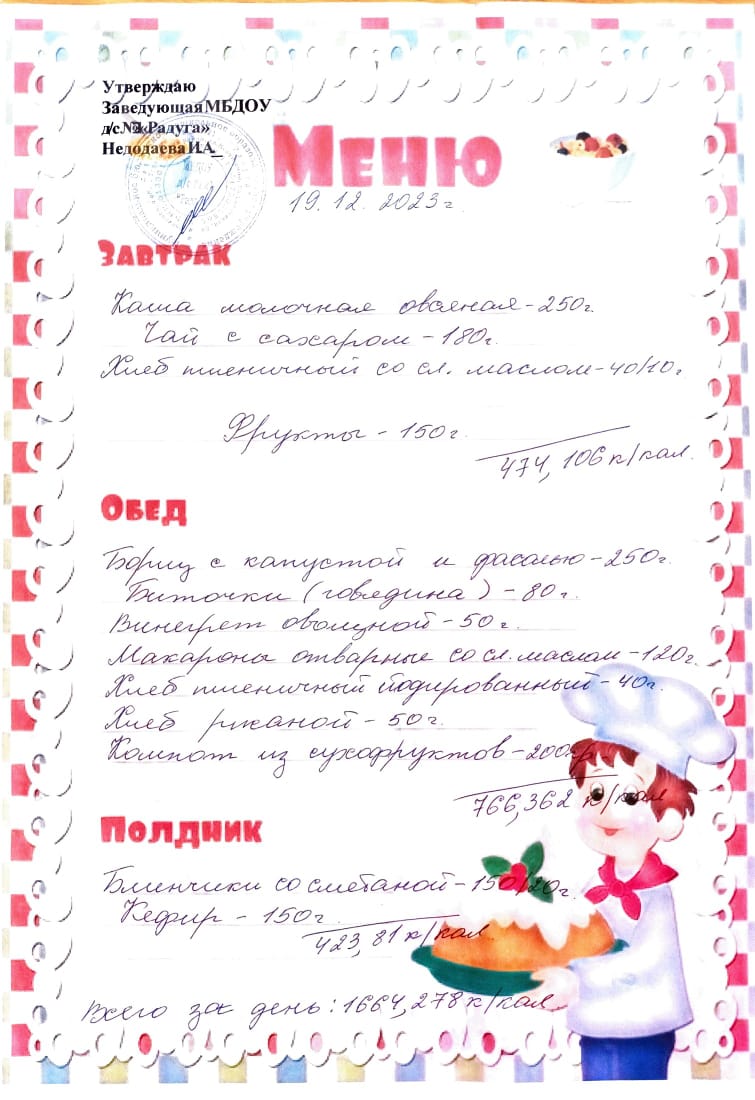 Утверждаю
Заведующая МБДОУ
д/с №2 «Радуга»
Недодаева И.А_
Меню
19. 12. 2023г
Завтрак
Каша молочная овсяная - 250г.
Чай с сахаром - 180г.
Хлеб пшеничный со сл. маслом - 40/10г
Фрукты - 150г.
474, 106 к/кал.
Обед
Борщ с капустой и фасолью - 250г.
Биточки (говядина) - 80г.
Винегрет овощной - 50г.
Макароны отварные со сл. маслом - 120г.
Хлеб пшеничный йодированный - 40г.
Хлеб ржаной - 50г.
Компот из сухофруктов - 200гр
766,362 к/кал
Полдник
Блинчики со сметаной - 150/20г.
Кефир - 150г.
423,81 к/кал
Всего за день: 1664,278 к/кал